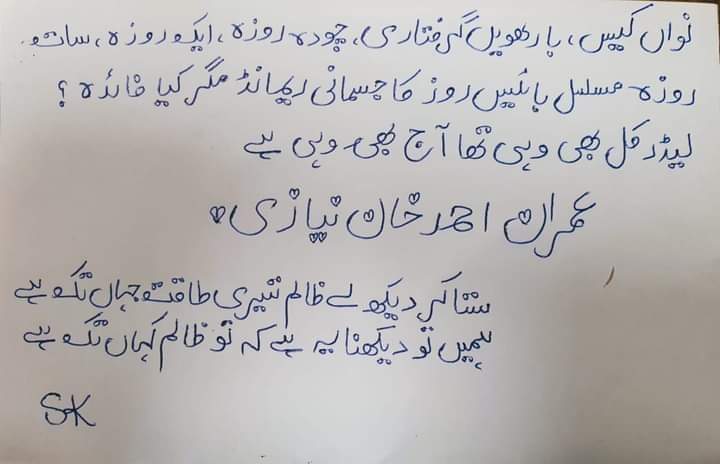 نواں کیس، بارھویں گرفتاری، چودہ روزہ، ایک روزہ، سات
روزہ مسلسل بائیس روز کا جسمانی ریمانڈ مگر کیا فائدہ؟
لیڈر کل بھی وہی تھا آج بھی وہی ہے
عمران احمد خان نیازی
ستا کر دیکھ لے ظالم تیری طاقت جہاں تک ہے
ہمیں تو دیکھنا یہ ہے کہ تو ظالم کہاں تک ہے
SK